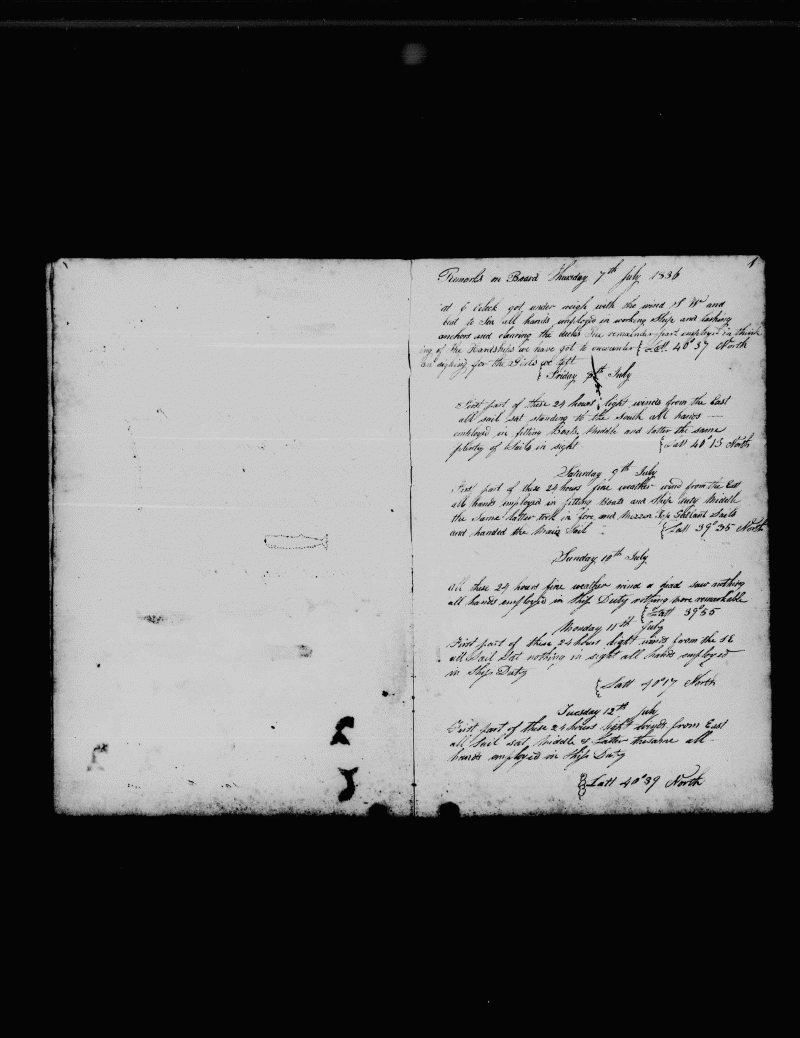 1
Remarks on Board Thursday 7th July 1836
at 6 Oclock got under weigh with the wind S W and
beat to Sea all hands employed in working Ship and lashing
anchors and clearing the decks The remainder part employd in think
ing of the Hardships we have got to encounter { Latt. 40°37 North
and sighing for the Girls we left
{ Friday 8th July
First part of these 24 hours light winds from the East
all sail sat standing to the South all hands
employed in fitting Boats, Middle and latter the same
plenty of Sails in sight { Latt 40°13 North
Saturday 9th July
First part of these 24 hours fine weather wind from the East
all hands employed in fitting Boats and Ships duty Middle
the same latter took in fore and Mizzen Top Gallant Sails
and handed the Main Sail { Latt 39°35 North
Sunday 10th July
All these 24 hours fine weather wind saw nothing
all hands employd in Ships Duty nothing more remarkable
{ Latt 39°55
Monday 11th July
First part of these 24 hours light winds from the SE
all Sail Sat nothing in sight all hands employed
in Ships Duty
{ Latt 40°17 North
Tuesday 12th July
First part of these 24 hours light winds from East
all Sail sat, Middle & Latter the same all
hands employed in Ships Duty
{ Latt 40°39 North